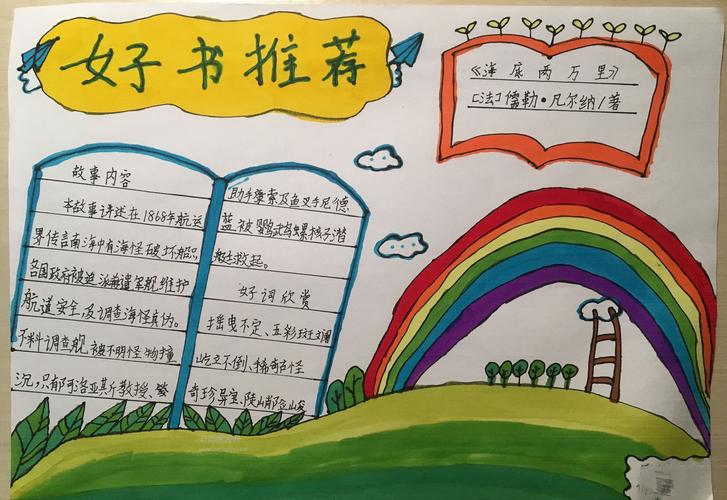 好书推荐
《海底两万里》
[法]儒勒·凡尔纳/著
故事内容
本故事讲述在1868年航运
界传言南海中有海怪破坏船只
各国政府被迫派遣军舰维护
航道安全,及调查海怪真伪。
不料调查舰被不明怪物撞
沉,只部阿洛亚其斤教授、
助手 及鱼叉手尼德
蓝被鹦鹉螺核子潜
艇救起。
好词欣赏
摇曳不定、五彩斑斓
屹立不倒、稀奇古怪
奇珍异宝、